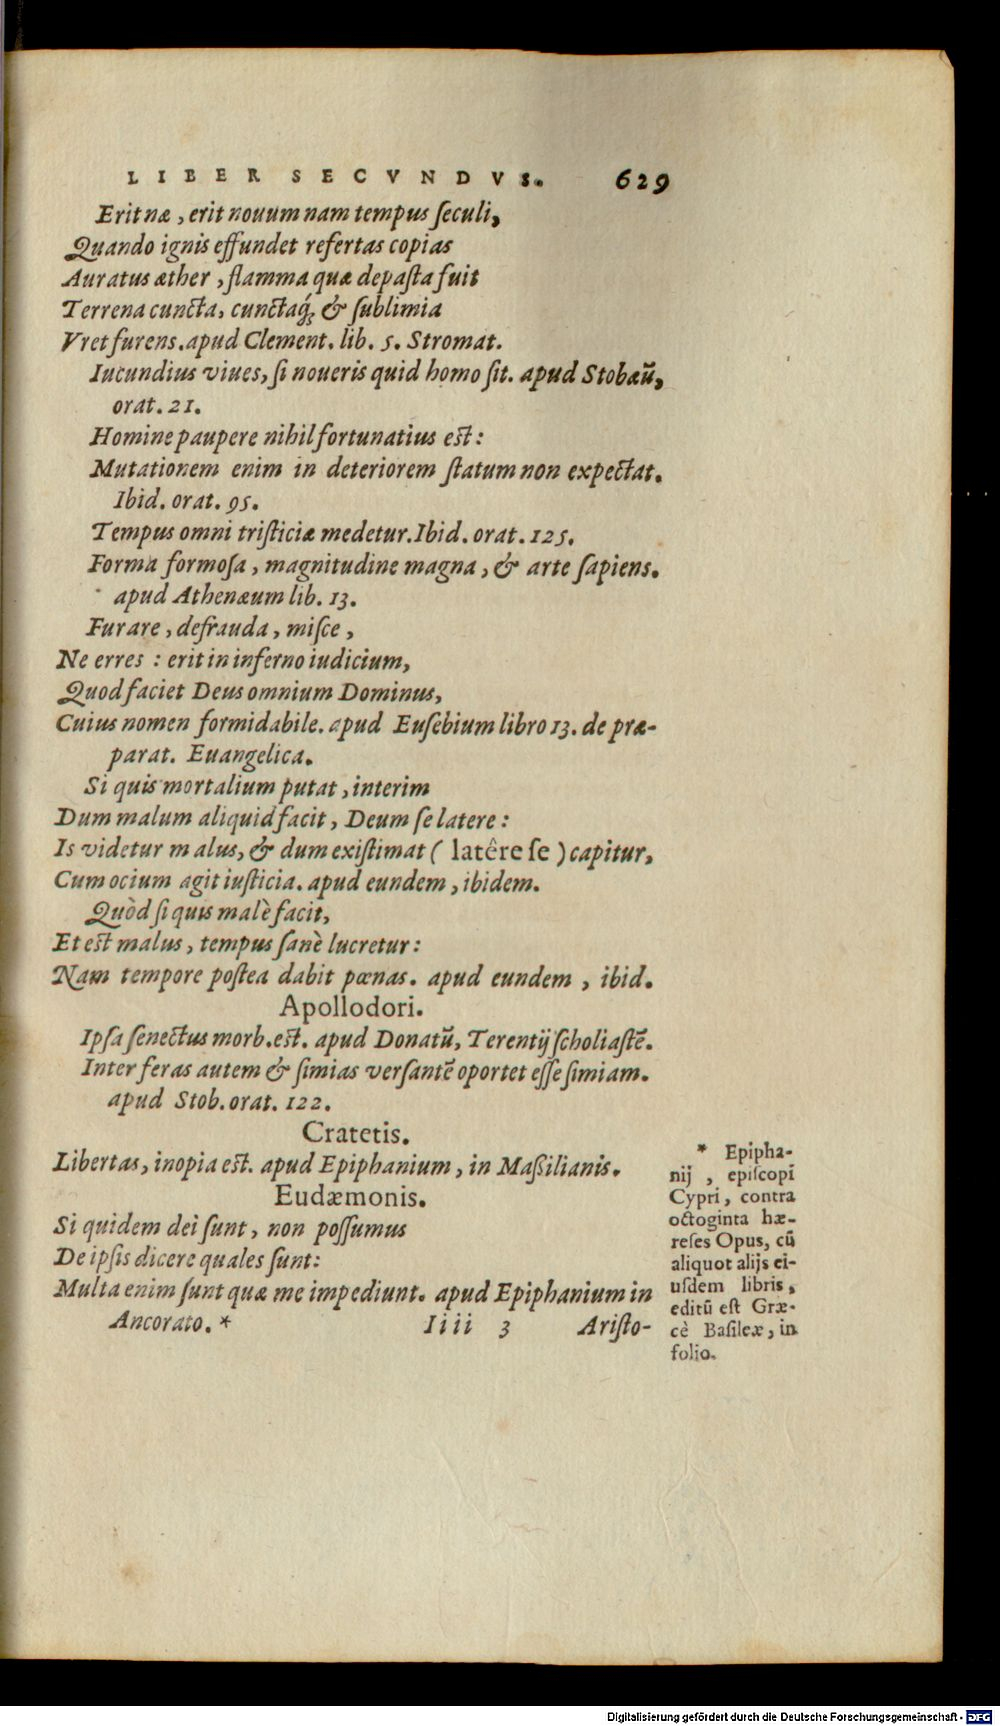 LIBER SECVNDVS. 629
Erit næ, erit nouum nam tempus ſeculi,
Quando ignis effundet refertas copias
Auratus æther, flamma quæ depaſta fuit
Terrena cuncta, cunctaq́; & ſublimia
Vret furens. apud Clement. lib. 5. Stromat.
Iucundius viues, ſi noueris quid homo ſit. apud Stobæũ,
orat. 21.
Homine paupere nihil fortunatius eſt:
Mutationem enim in deteriorem ſtatum non expectat.
Ibid. orat. 95.
Tempus omni triſticiæ medetur. Ibid. orat. 125.
Forma formoſa, magnitudine magna, & arte ſapiens.
apud Athenæum lib. 13.
Furare, defrauda, miſce,
Ne erres : erit in inferno iudicium,
Quod faciet Deus omnium Dominus,
Cuius nomen formidabile. apud Euſebium libro 13. de præ-
parat. Euangelica.
Si quis mortalium putat, interim
Dum malum aliquid facit, Deum ſe latere :
Is videtur malus, & dum exiſtimat ( latêre ſe ) capitur,
Cum ocium agit iuſticia. apud eundem, ibidem.
Quòd ſi quis malè facit,
Et eſt malus, tempus ſanè lucretur :
Nam tempore poſtea dabit pœnas. apud eundem, ibid.
Apollodori.
Ipſa ſenectus morb. eſt. apud Donatũ, Terentij ſcholiaſtẽ.
Inter feras autem & ſimias verſantẽ oportet eſſe ſimiam.
apud Stob. orat. 122.
Cratetis.
Libertas, inopia eſt. apud Epiphanium, in Maßilianis.
Eudæmonis.
Si quidem dei ſunt, non poſſumus
De ipſis dicere quales ſunt:
Multa enim ſunt quæ me impediunt. apud Epiphanium in
Ancorato. *
* Epipha-
nij, epiſcopi
Cypri, contra
octoginta hæ-
reſes Opus, cũ
aliquot alijs ei-
uſdem libris,
editũ eſt Græ-
cè Baſileæ, in
folio.
Iiii 3 Ariſto-
Digitalisierung gefördert durch die Deutsche Forschungsgemeinschaft - DFG